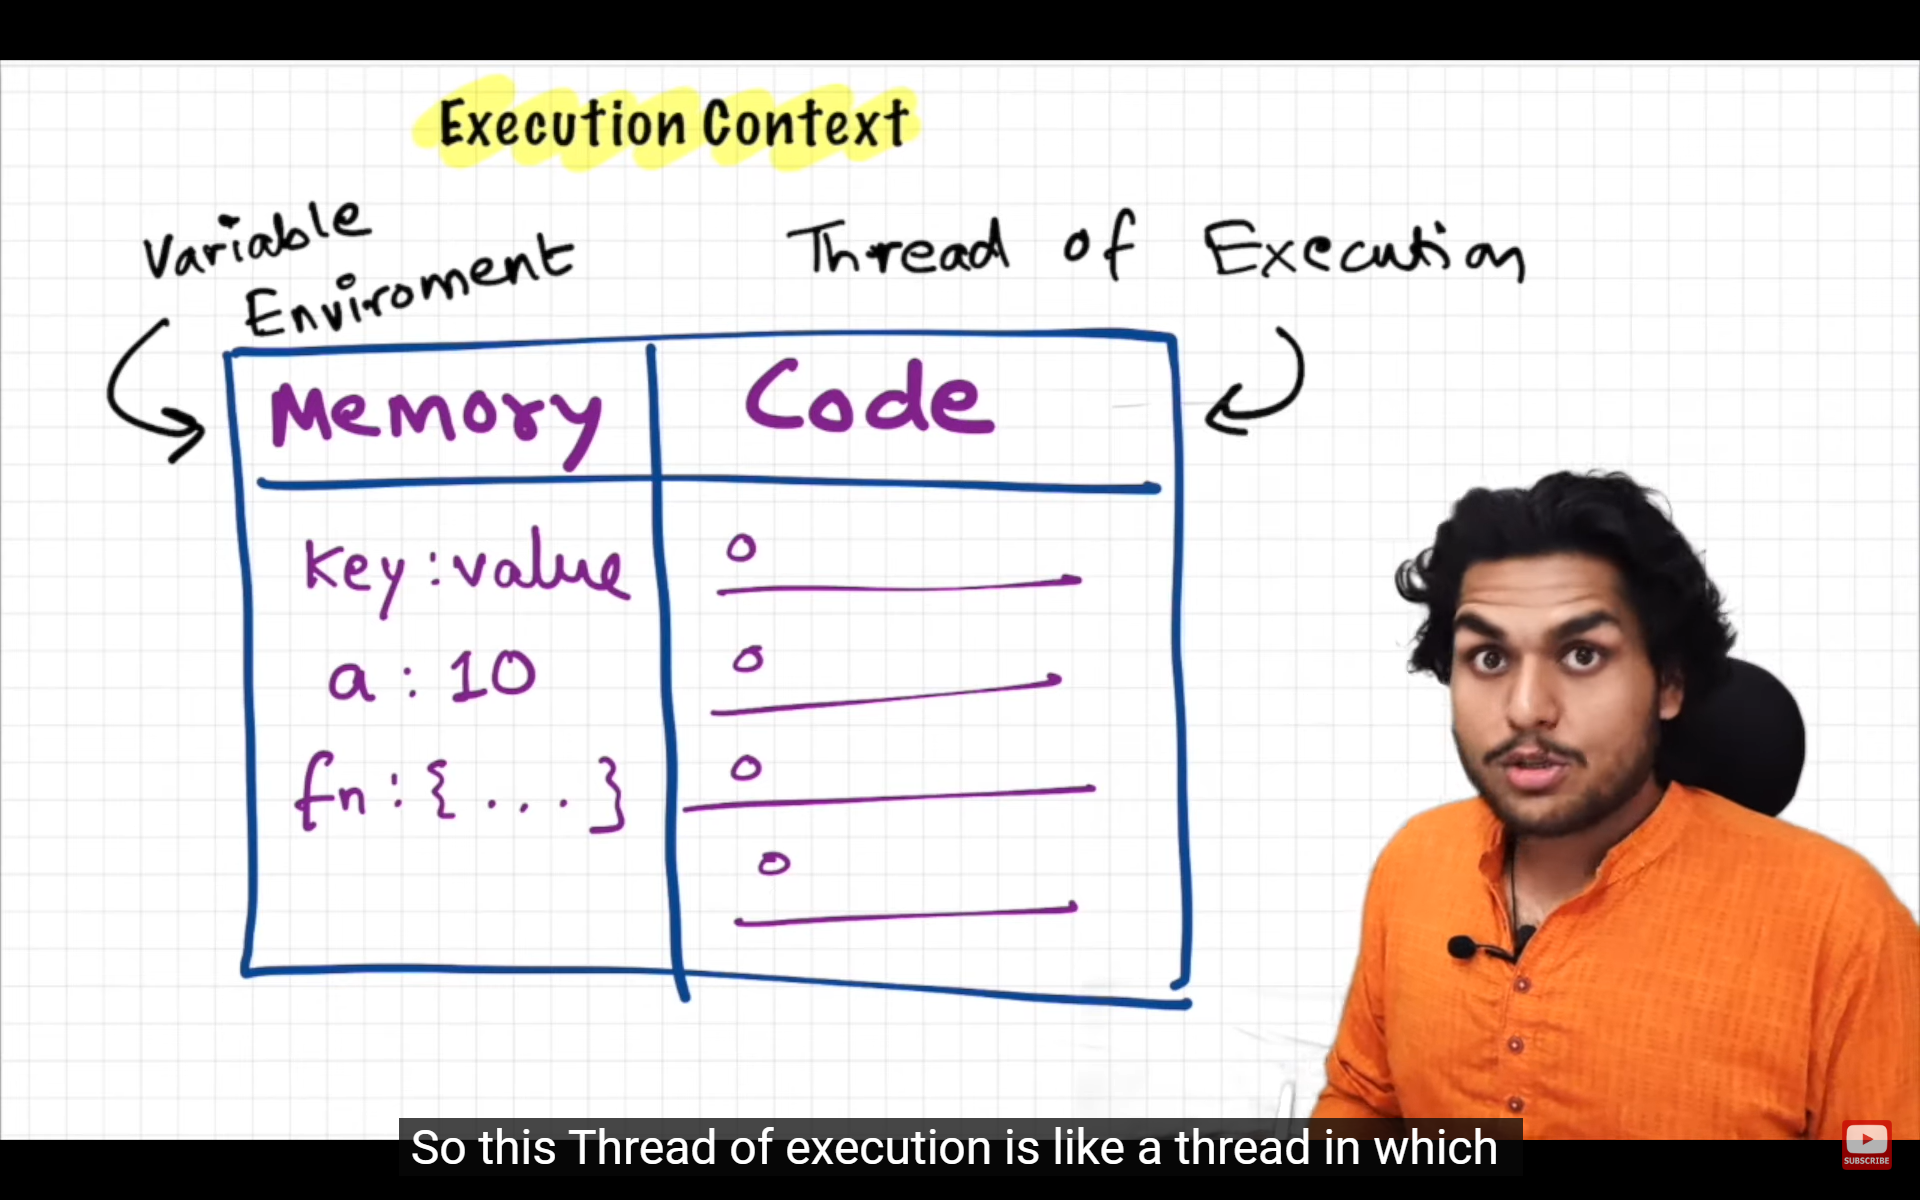 Execution Context
Variable
Enviroment
Thread of Execution
Memory
Code
key : value
a : 10
fn : { . . . }
So this Thread of execution is like a thread in which
SUBSCRIBE